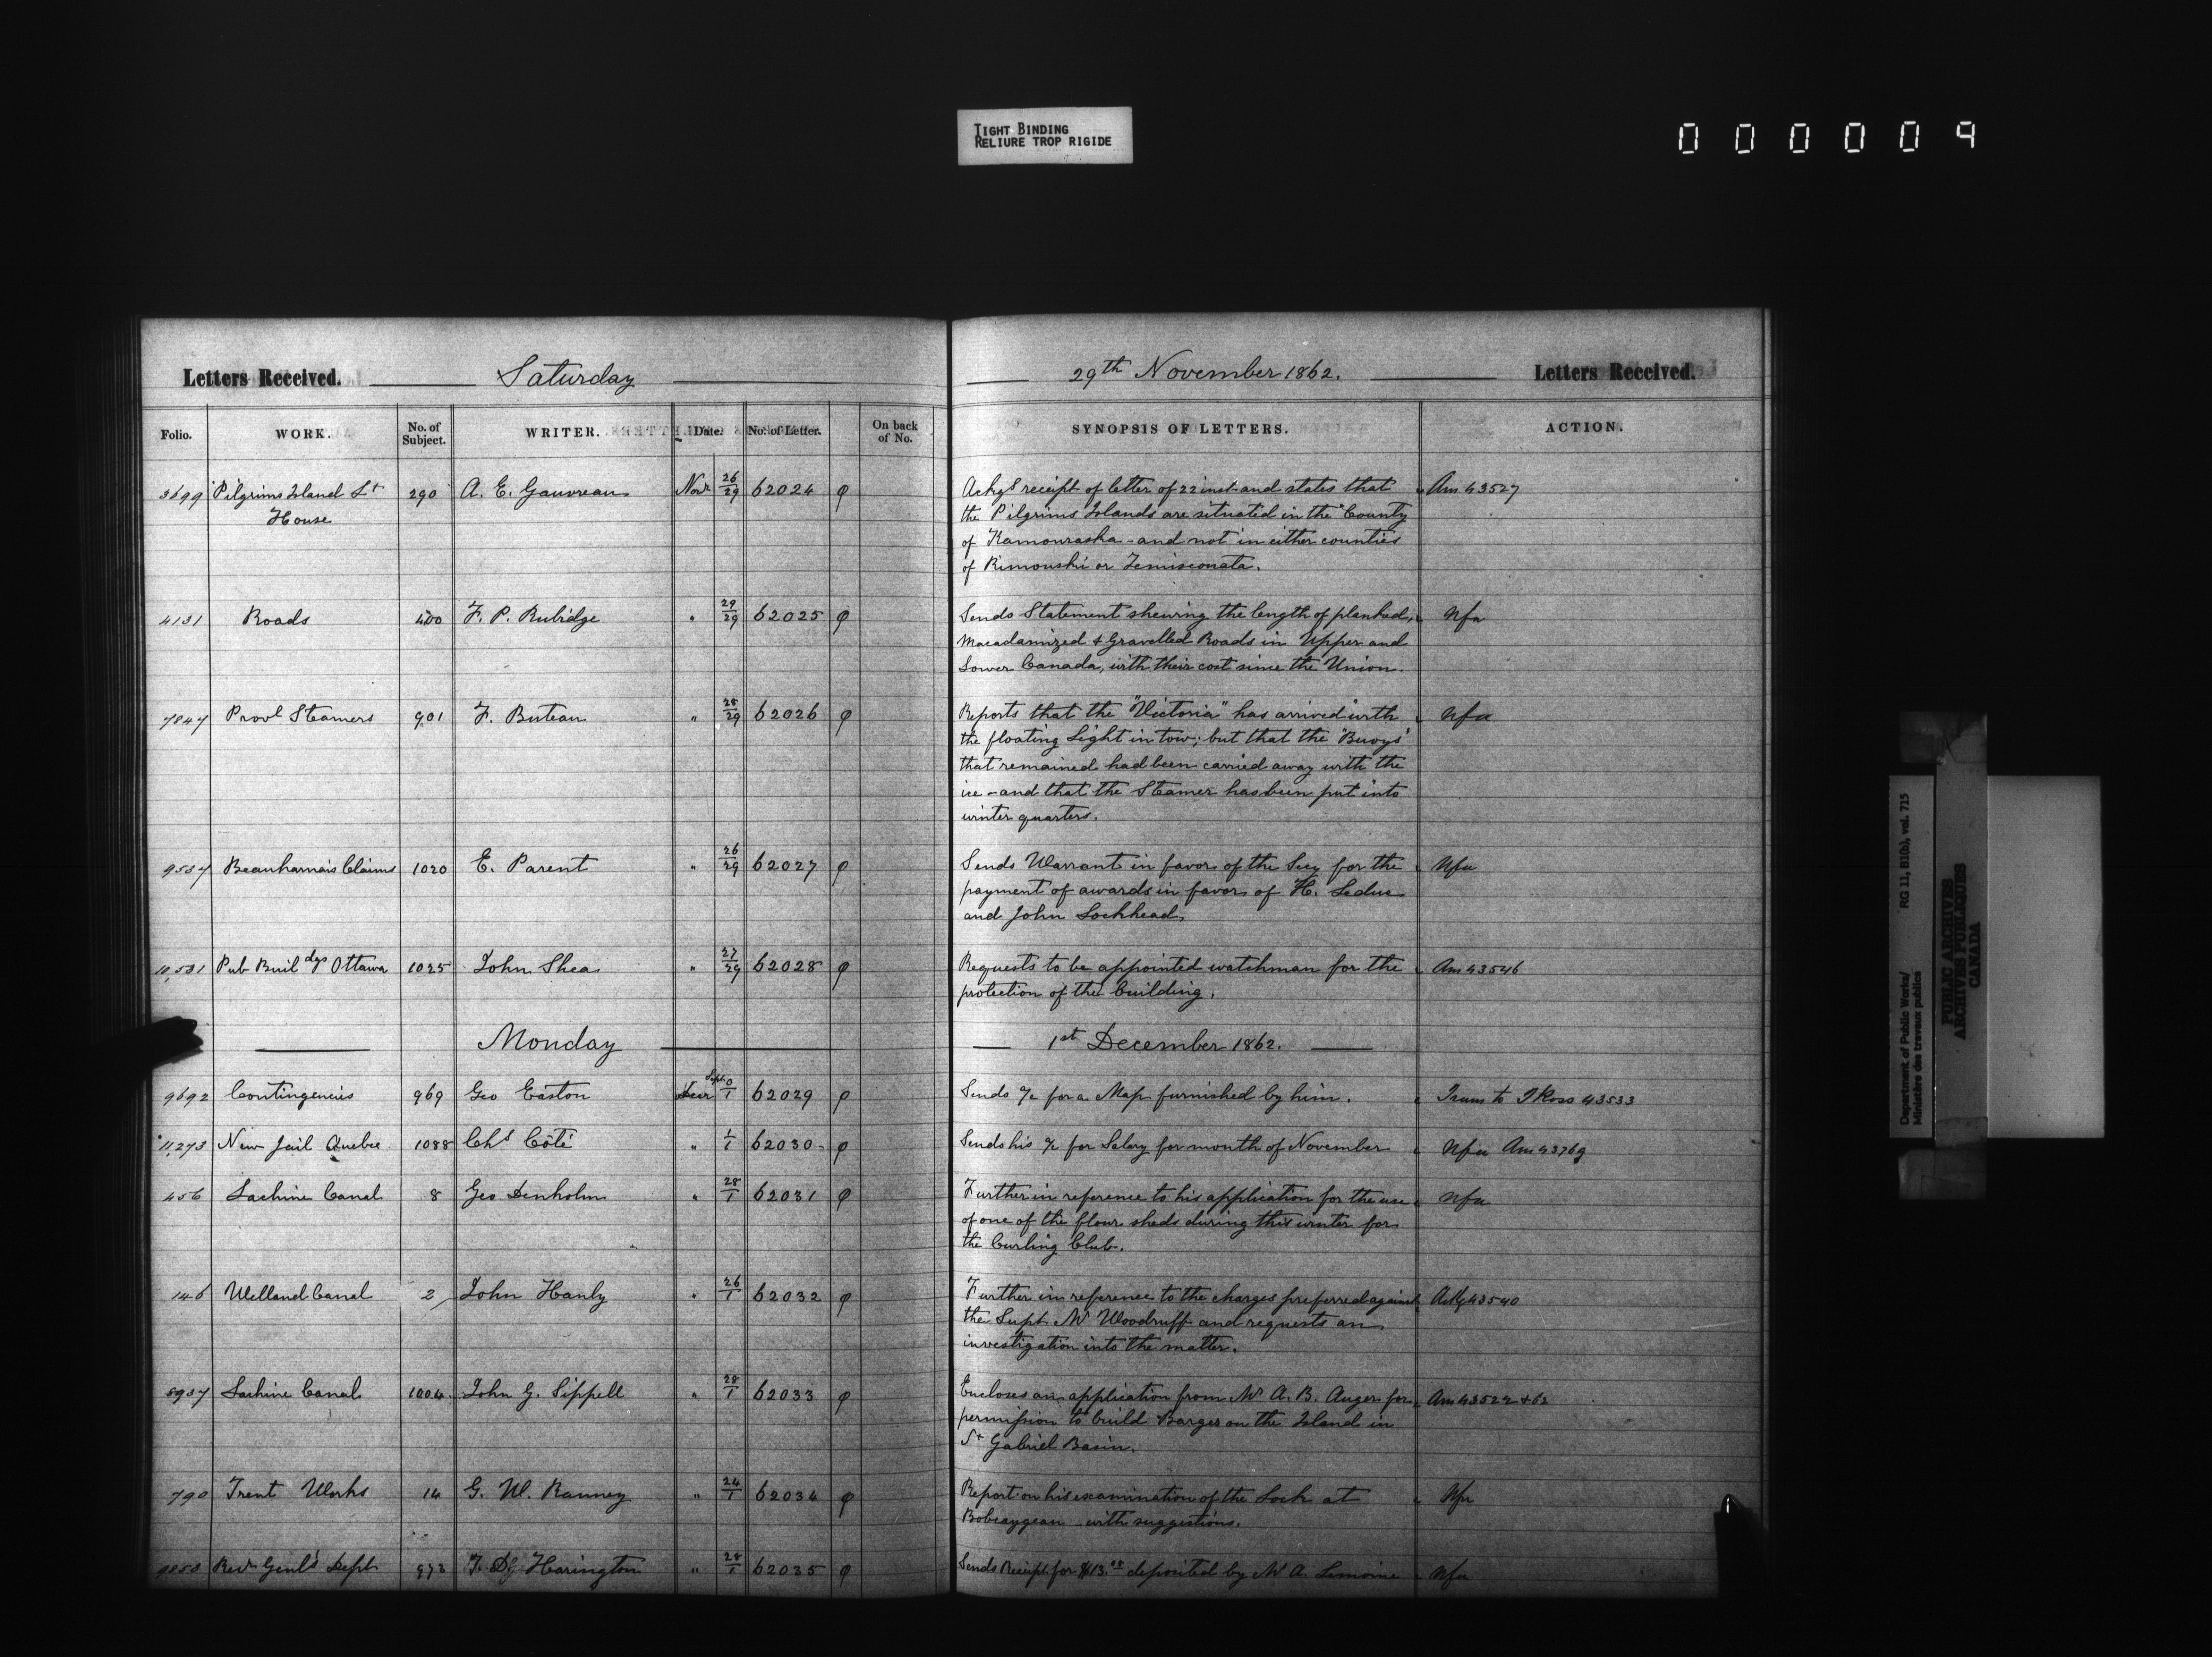 TIGHT BINDING
RELIURE TROP RIGIDE
000009
Letters Received. Saturday 29th November 1862. Letters Received.
Folio. WORK. No. of Subject. WRITER. Date. No. of Letter. On back of No. SYNOPSIS OF LETTERS. ACTION.
3699 Pilgrims Island Lt 290 A. E. Gauvreau Novr 26/29 62024 φ Ackgs receipt of letter of 22 inst and states that Am 43527
House the Pilgrims Islands are situated in the County
of Kamouraska - and not in either counties
of Rimouski or Temisconata.
4131 Roads 400 F. P. Rubidge " 29/29 62025 φ Sends Statement shewing the length of planked, Nfa
Macadamized & Gravelled Roads in Upper and
Lower Canada, with their cost since the Union.
7847 Provl Steamers 901 F. Buteau " 28/29 62026 φ Reports that the "Victoria" has arrived with Nfa
the floating Light in tow; but that the "Buoys"
that remained had been carried away with the
ice - and that the Steamer has been put into
winter quarters.
9537 Beauharnais Claims 1020 E. Parent " 26/29 62027 φ Sends Warrant in favor of the Secy for the Nfa
payment of awards in favor of H. Leduc
and John Lockhead,
10,531 Pub Buildgs Ottawa 1025 John Shea " 27/29 62028 φ Requests to be appointed watchman for the Am 43546
protection of the building.
Monday 1st December 1862.
9692 Contingencies 969 Geo Easton Sept. 0/1 62029 φ Sends a/c for a Map furnished by him. Trans to J Ross 43533
11,273 New Jail Quebec 1088 Chs Côté " 1/1 62030 φ Sends his a/c for Salary for month of November Nfa Am 43769
456 Lachine Canal 8 Geo Denholm " 28/1 62031 φ Further in reference to his application for the use Nfa
of one of the flour sheds during this winter for
the Curling Club.
146 Welland Canal 2 John Hanly " 26/1 62032 φ Further in reference to the charges preferred against Ackg 43540
the Supt Mr Woodruff and requests an
investigation into the matter.
8937 Lachine Canal 1004 John G. Sippell " 28/1 62033 φ Encloses an application from Mr A. B. Auger for Am 43522 & 62
permission to build Barges on the Island in
St Gabriel Basin.
790 Trent Works 14 G. W. Ranney " 24/1 62034 φ Report on his examination of the Lock at Nfa
Bobcaygean - with suggestions.
9850 Recr Genl's Dept 973 T. D. Harington " 28/1 62035 φ Sends Receipt for $13.00 deposited by Mr A. Lemoine Nfa
Department of Public Works/ RG 11, B1(b), vol. 715
Ministère des travaux publics
PUBLIC ARCHIVES
ARCHIVES PUBLIQUES
CANADA